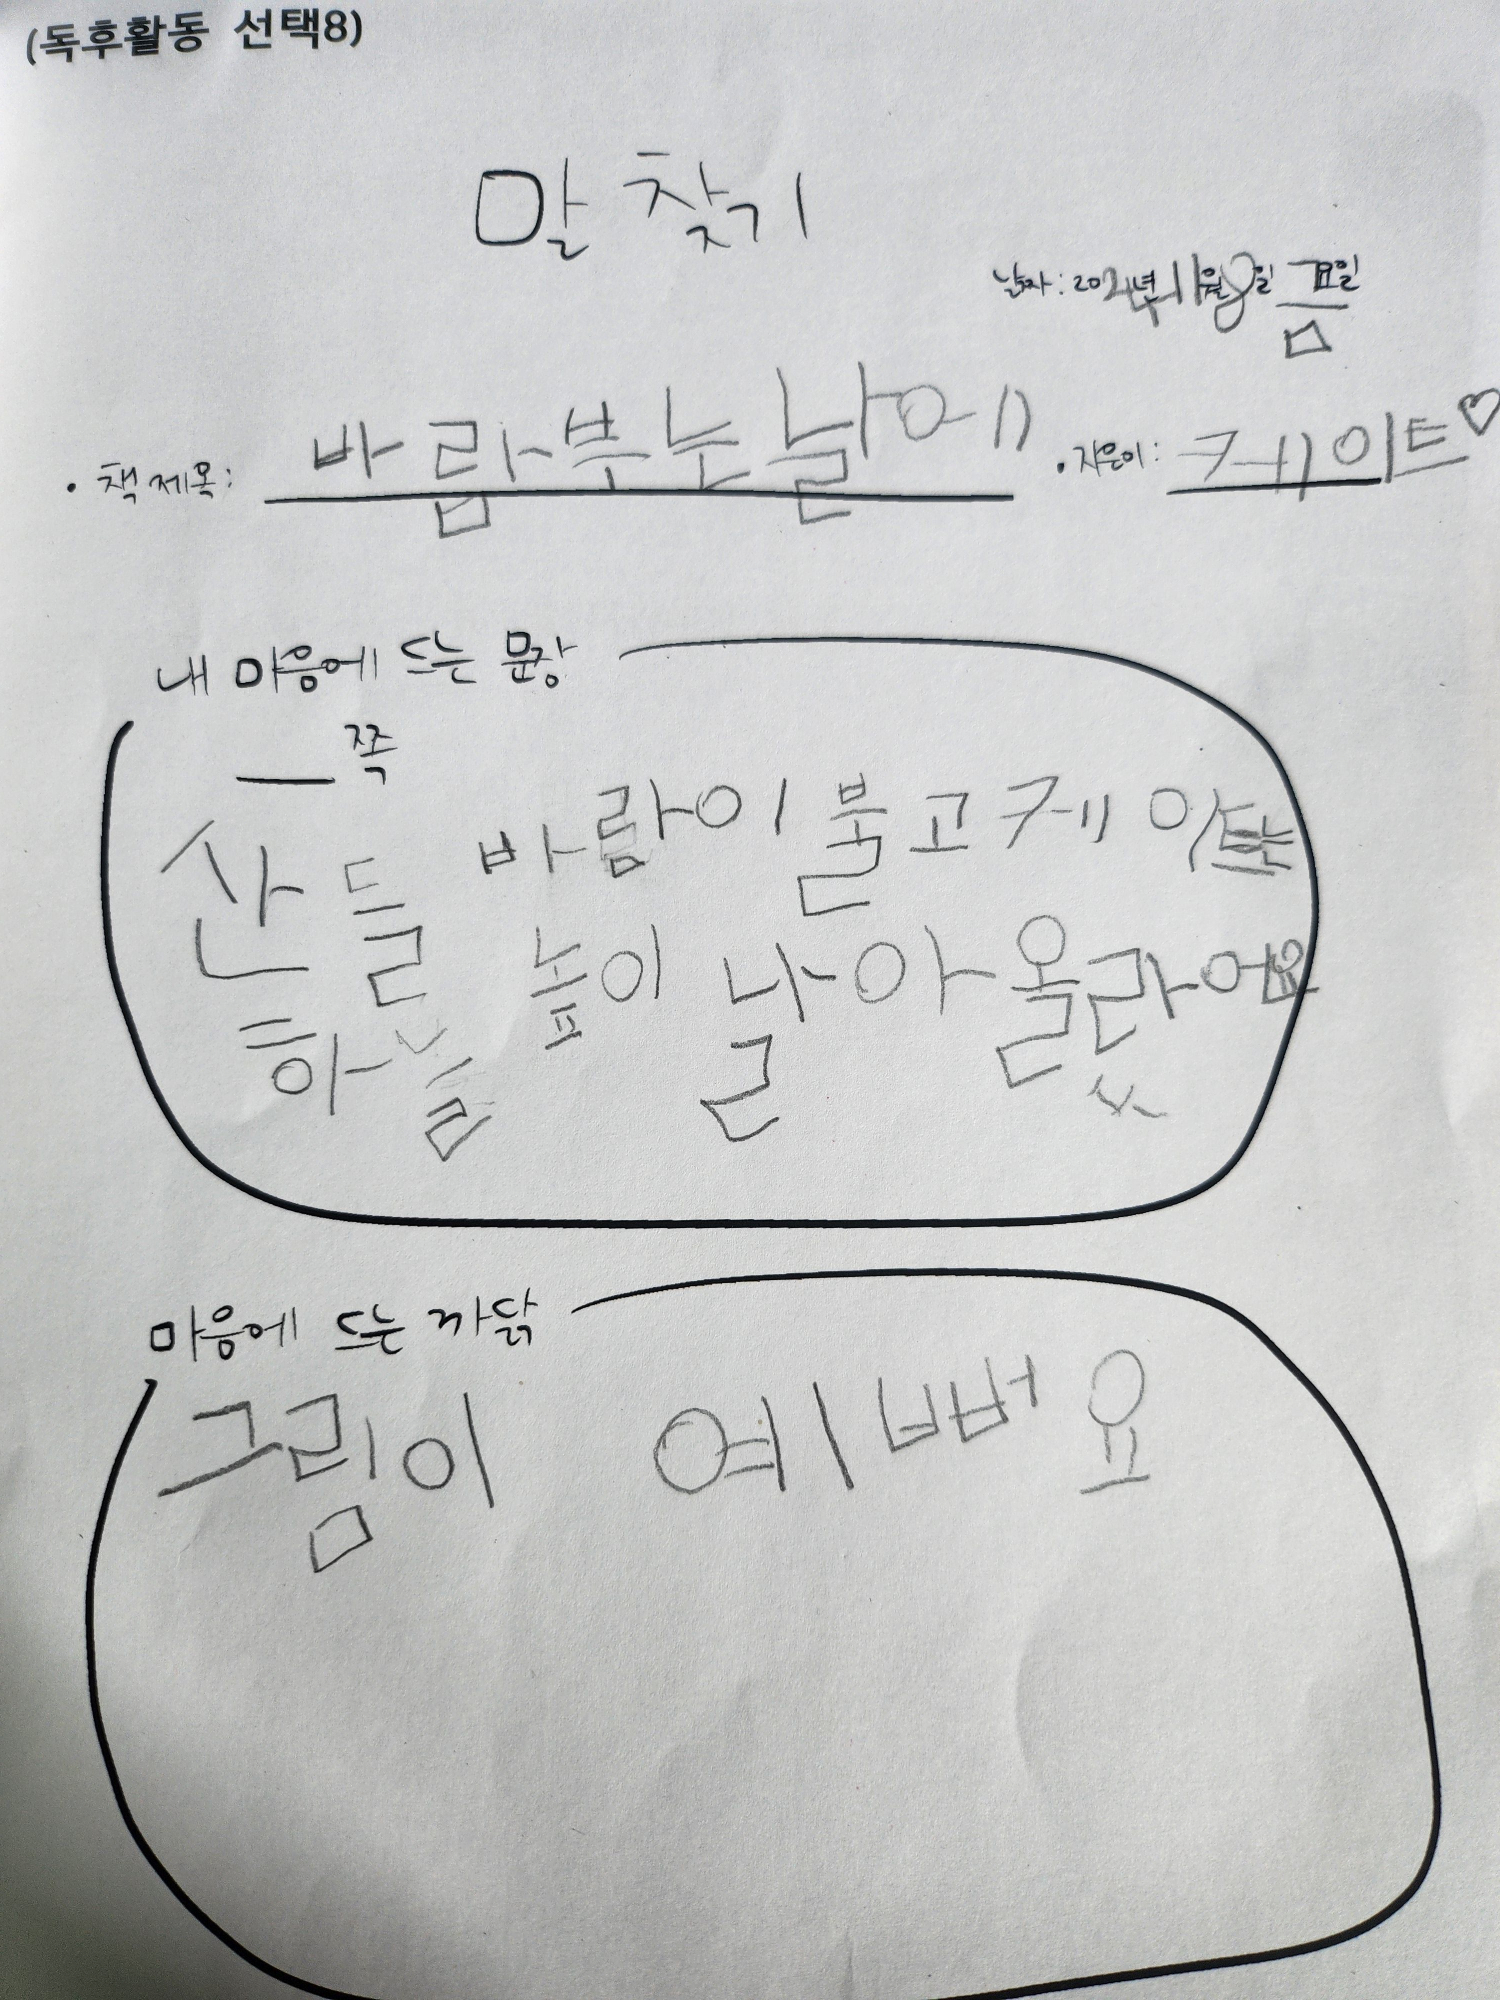 (독후활동 선택8)
말 찾기
날짜: 2024년 11월 8일 금요일
• 책 제목: 바람부는날에 • 지은이: 케이트♡
내 마음에 드는 문장
쪽
산들 바람이 불고 케이트는
하늘 높이 날아 올랐어요
마음에 드는 까닭
그림이 예뻐요